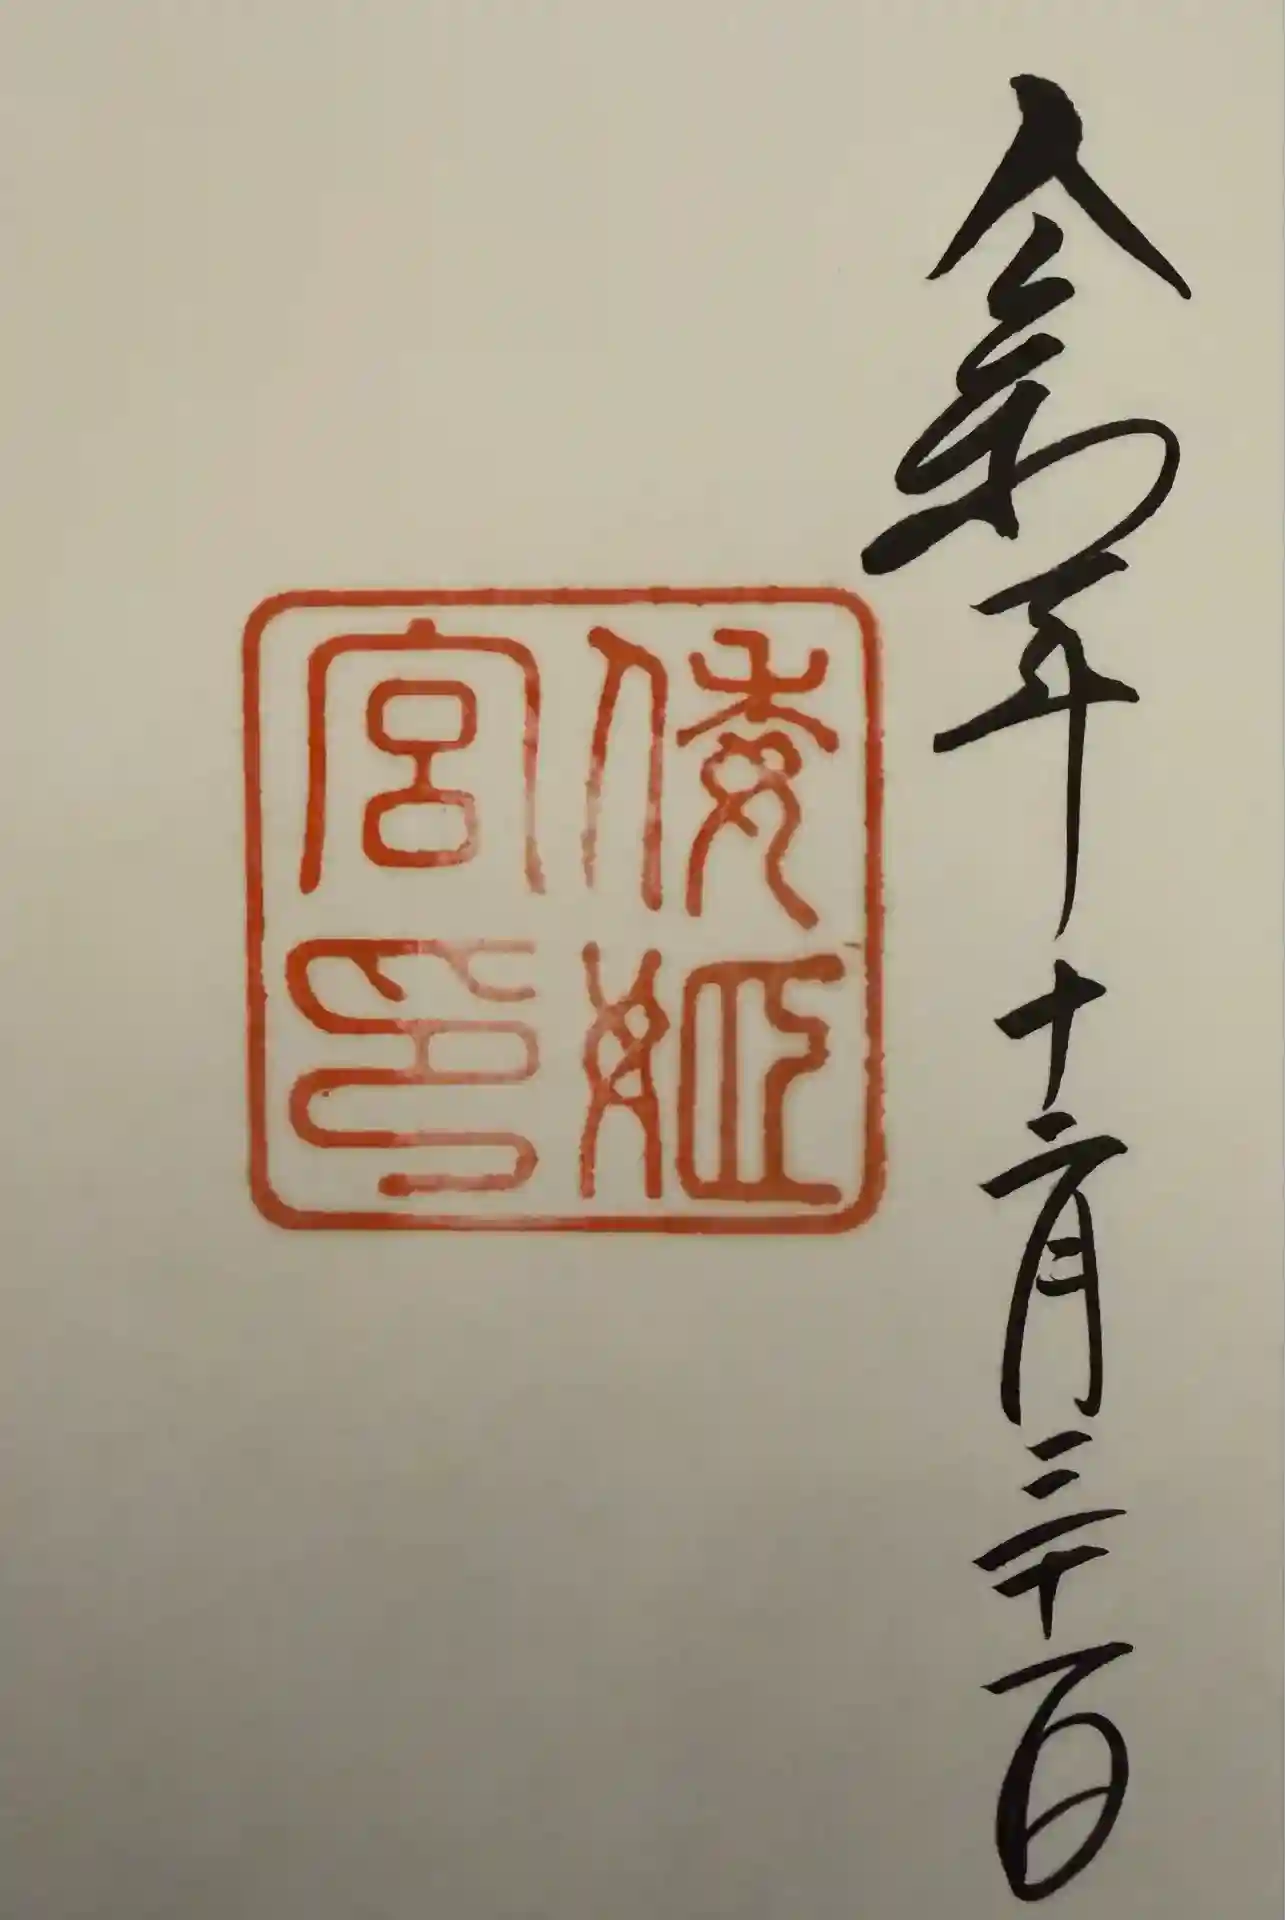 令和年十二月三十一日
倭姫
宮印